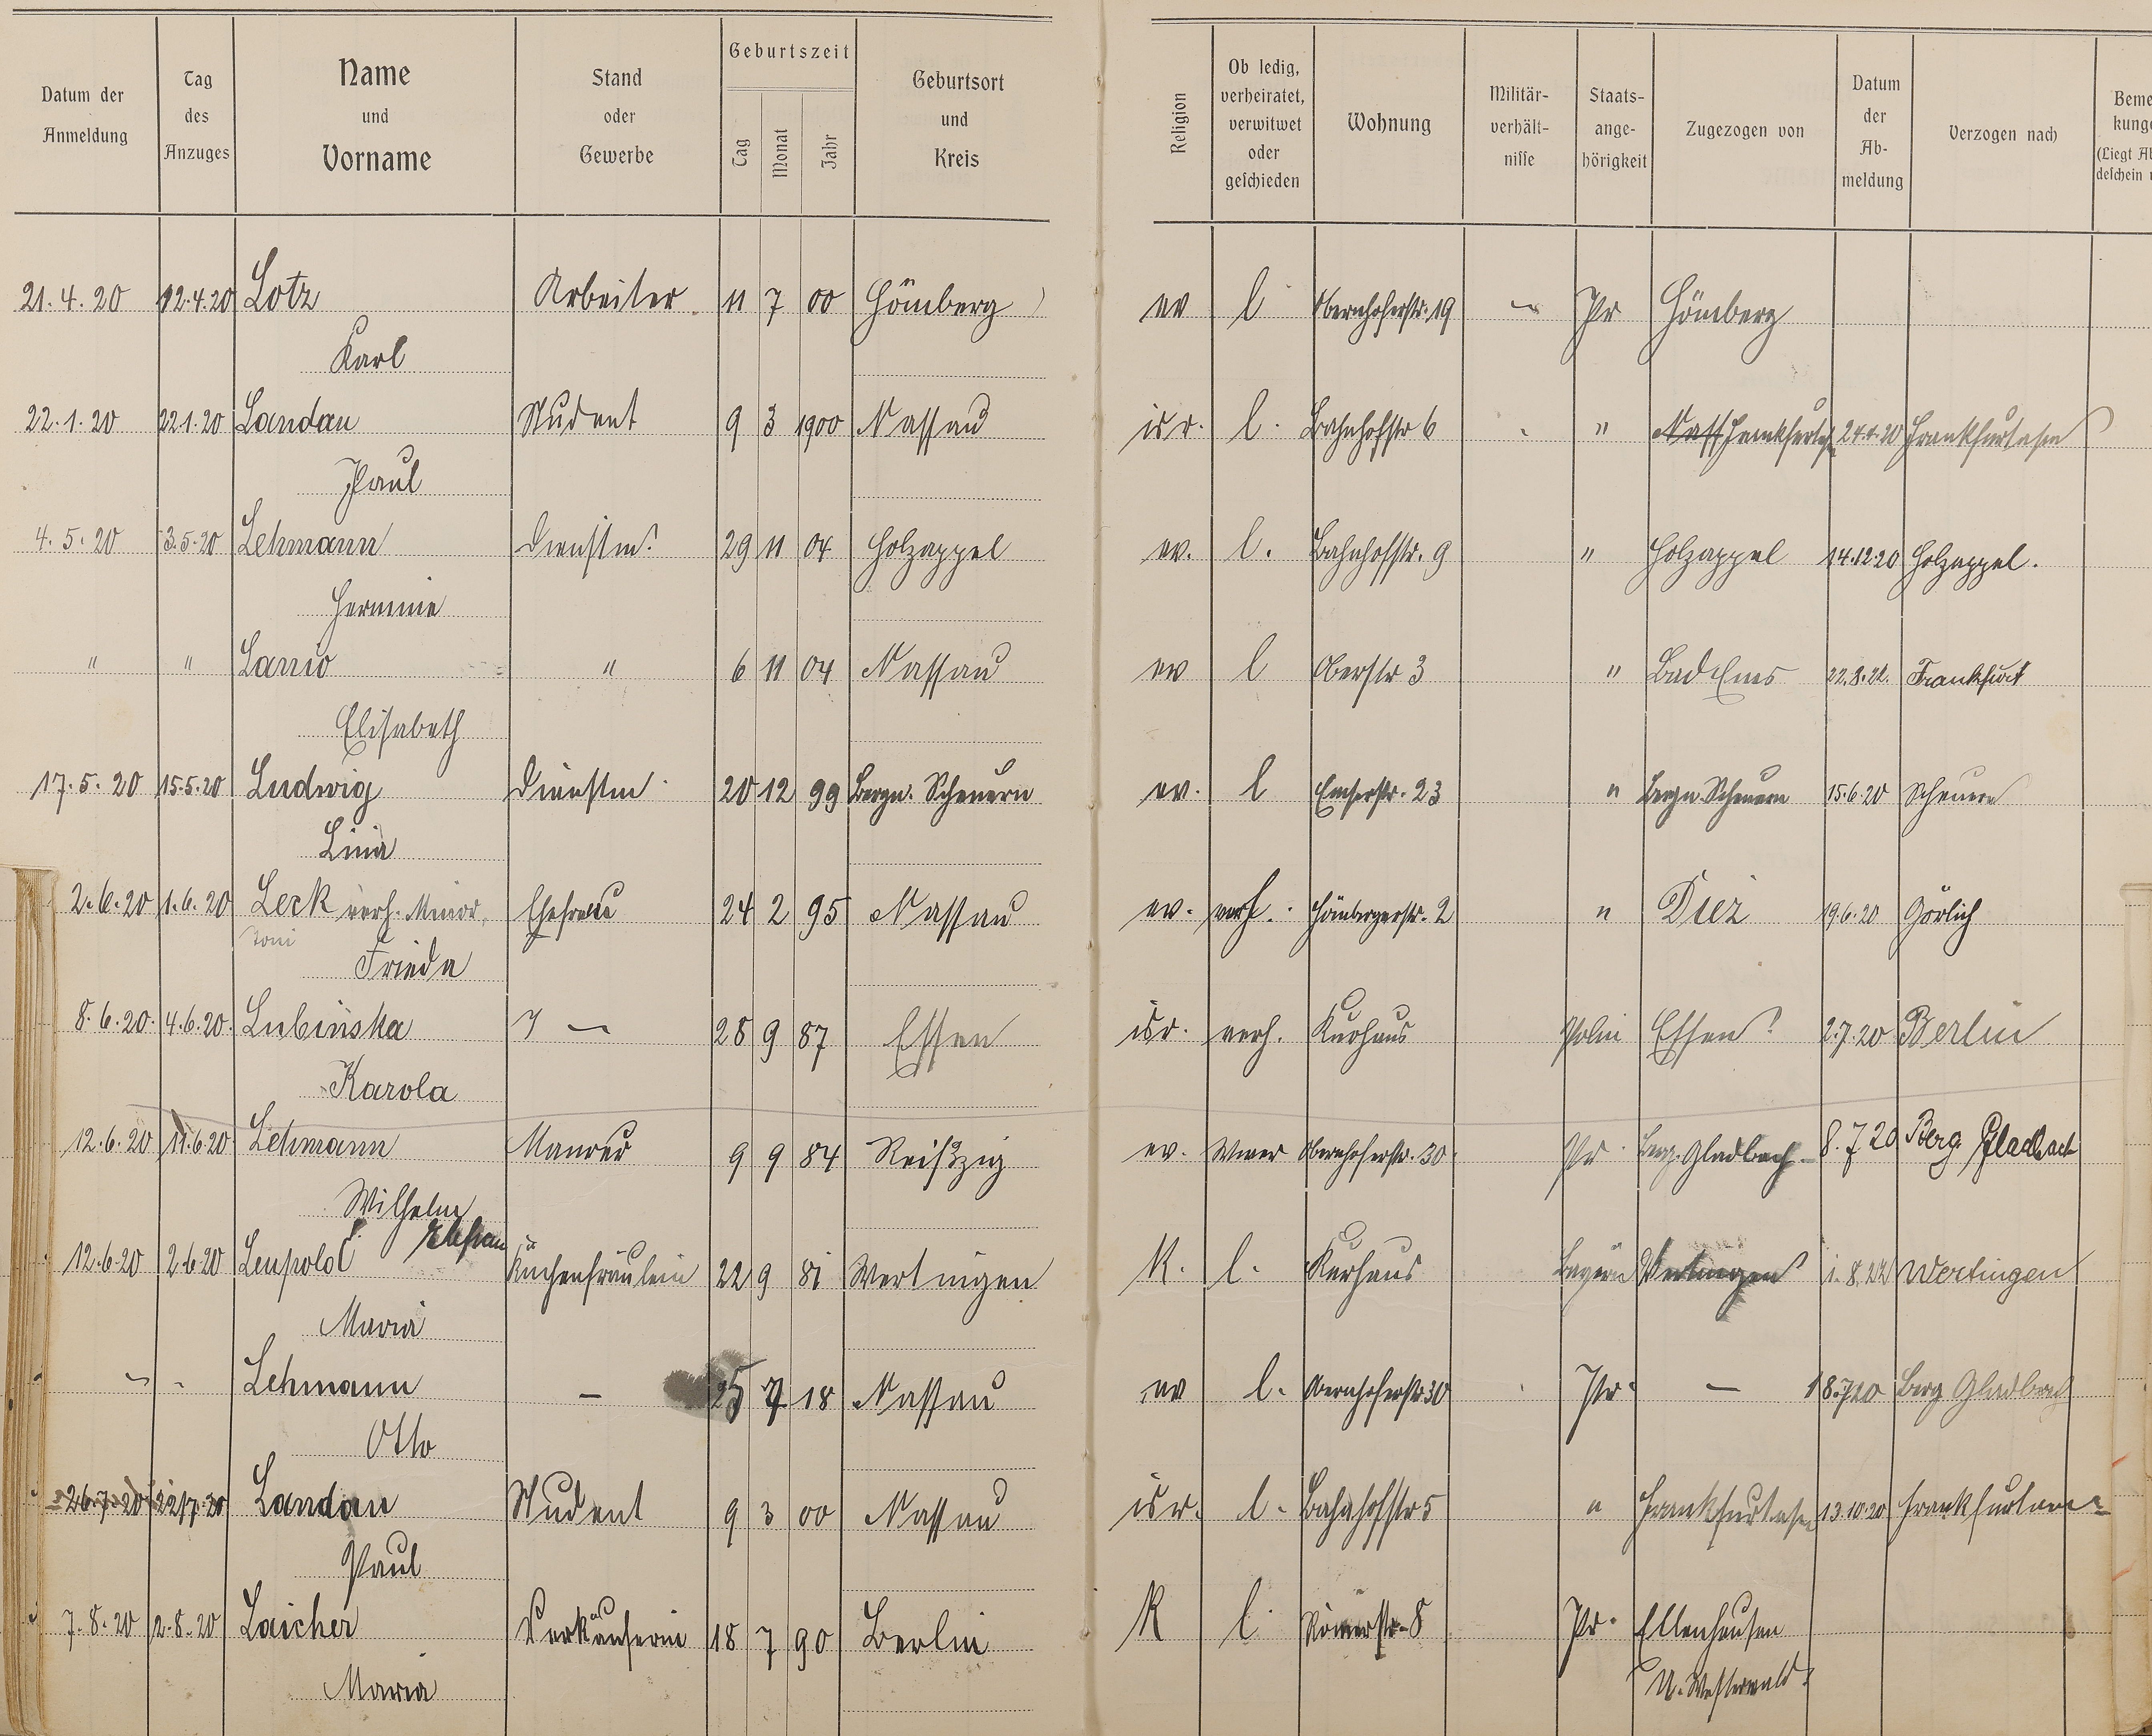 Datum der Anmeldung | Tag des Anzuges | Name und Vorname | Stand oder Gewerbe | Geburtszeit Tag Monat Jahr | Geburtsort und Kreis | Religion | Ob ledig, verheiratet, verwitwet oder geschieden | Wohnung | Militär-verhält-nisse | Staats-ange-hörigkeit | Zugezogen von | Datum der Ab-meldung | Verzogen nach
21.4.20 12.4.20 Lotz Arbeiter 11 7 00 Hömberg ev l Obernhoferstr. 19 - Pr Hömberg
Karl
22.1.20 22.1.20 Landau Student 9 3 1900 Nassau isr. l. Bahnhofstr 6 " 24.4.20
Paul
4.5.20 3.5.20 Lehmann Dienstm. 29 11 04 Holzappel ev. l. Bahnhofstr. 9 " Holzappel 14.12.20 Holzappel.
Hermine
" " Lanio " 6 11 04 Nassau ev l Oberstr 3 " Bad Ems Frankfurt
Elisabeth
17.5.20 15.5.20 Ludwig Dienstm. 20 12 99 Bergn. Scheuern ev. l Emserstr. 23 " Bergn. Scheuern 15.6.20 Scheuern
Lina
2.6.20 1.6.20 Leck verh. Minor Ehefrau 24 2 95 Nassau ev. verh. Hömbergerstr. 2 " Diez 19.6.20 Görlich
Toni
Frieda
8.6.20. 4.6.20. Lubinska - 28 9 87 Essen isr. verh. Kurhaus Polin Essen 2.7.20 Berlin
Karola
12.6.20 11.6.20 Lehmann Maurer 9 9 84 Reißzig ev. Obernhoferstr. 30 Pr. Berg. Gladbach 8.7 20 Berg Gladbach
Wilhelm
12.6.20 2.6.20 Leupold Küchenfräulein 22 9 81 Wertingen K. l. Kurhaus Bayern Wertingen Wertingen
Maria
Lehmann - 25 7 18 Nassau ev l. Obernhoferstr 30 Pr. - 8.7.20 Berg Gladbach
Otto
26.7.20 22.7.20 Landau Student 9 3 00 Nassau isr. l. Bahnhofstr 5 " 13.10.20
Paul
7.8.20 2.8.20 Laicher Verkäuferin 18 7 90 Berlin K l. Römerstr. 8 Pr. Ellenhausen
Maria U. Westerwald